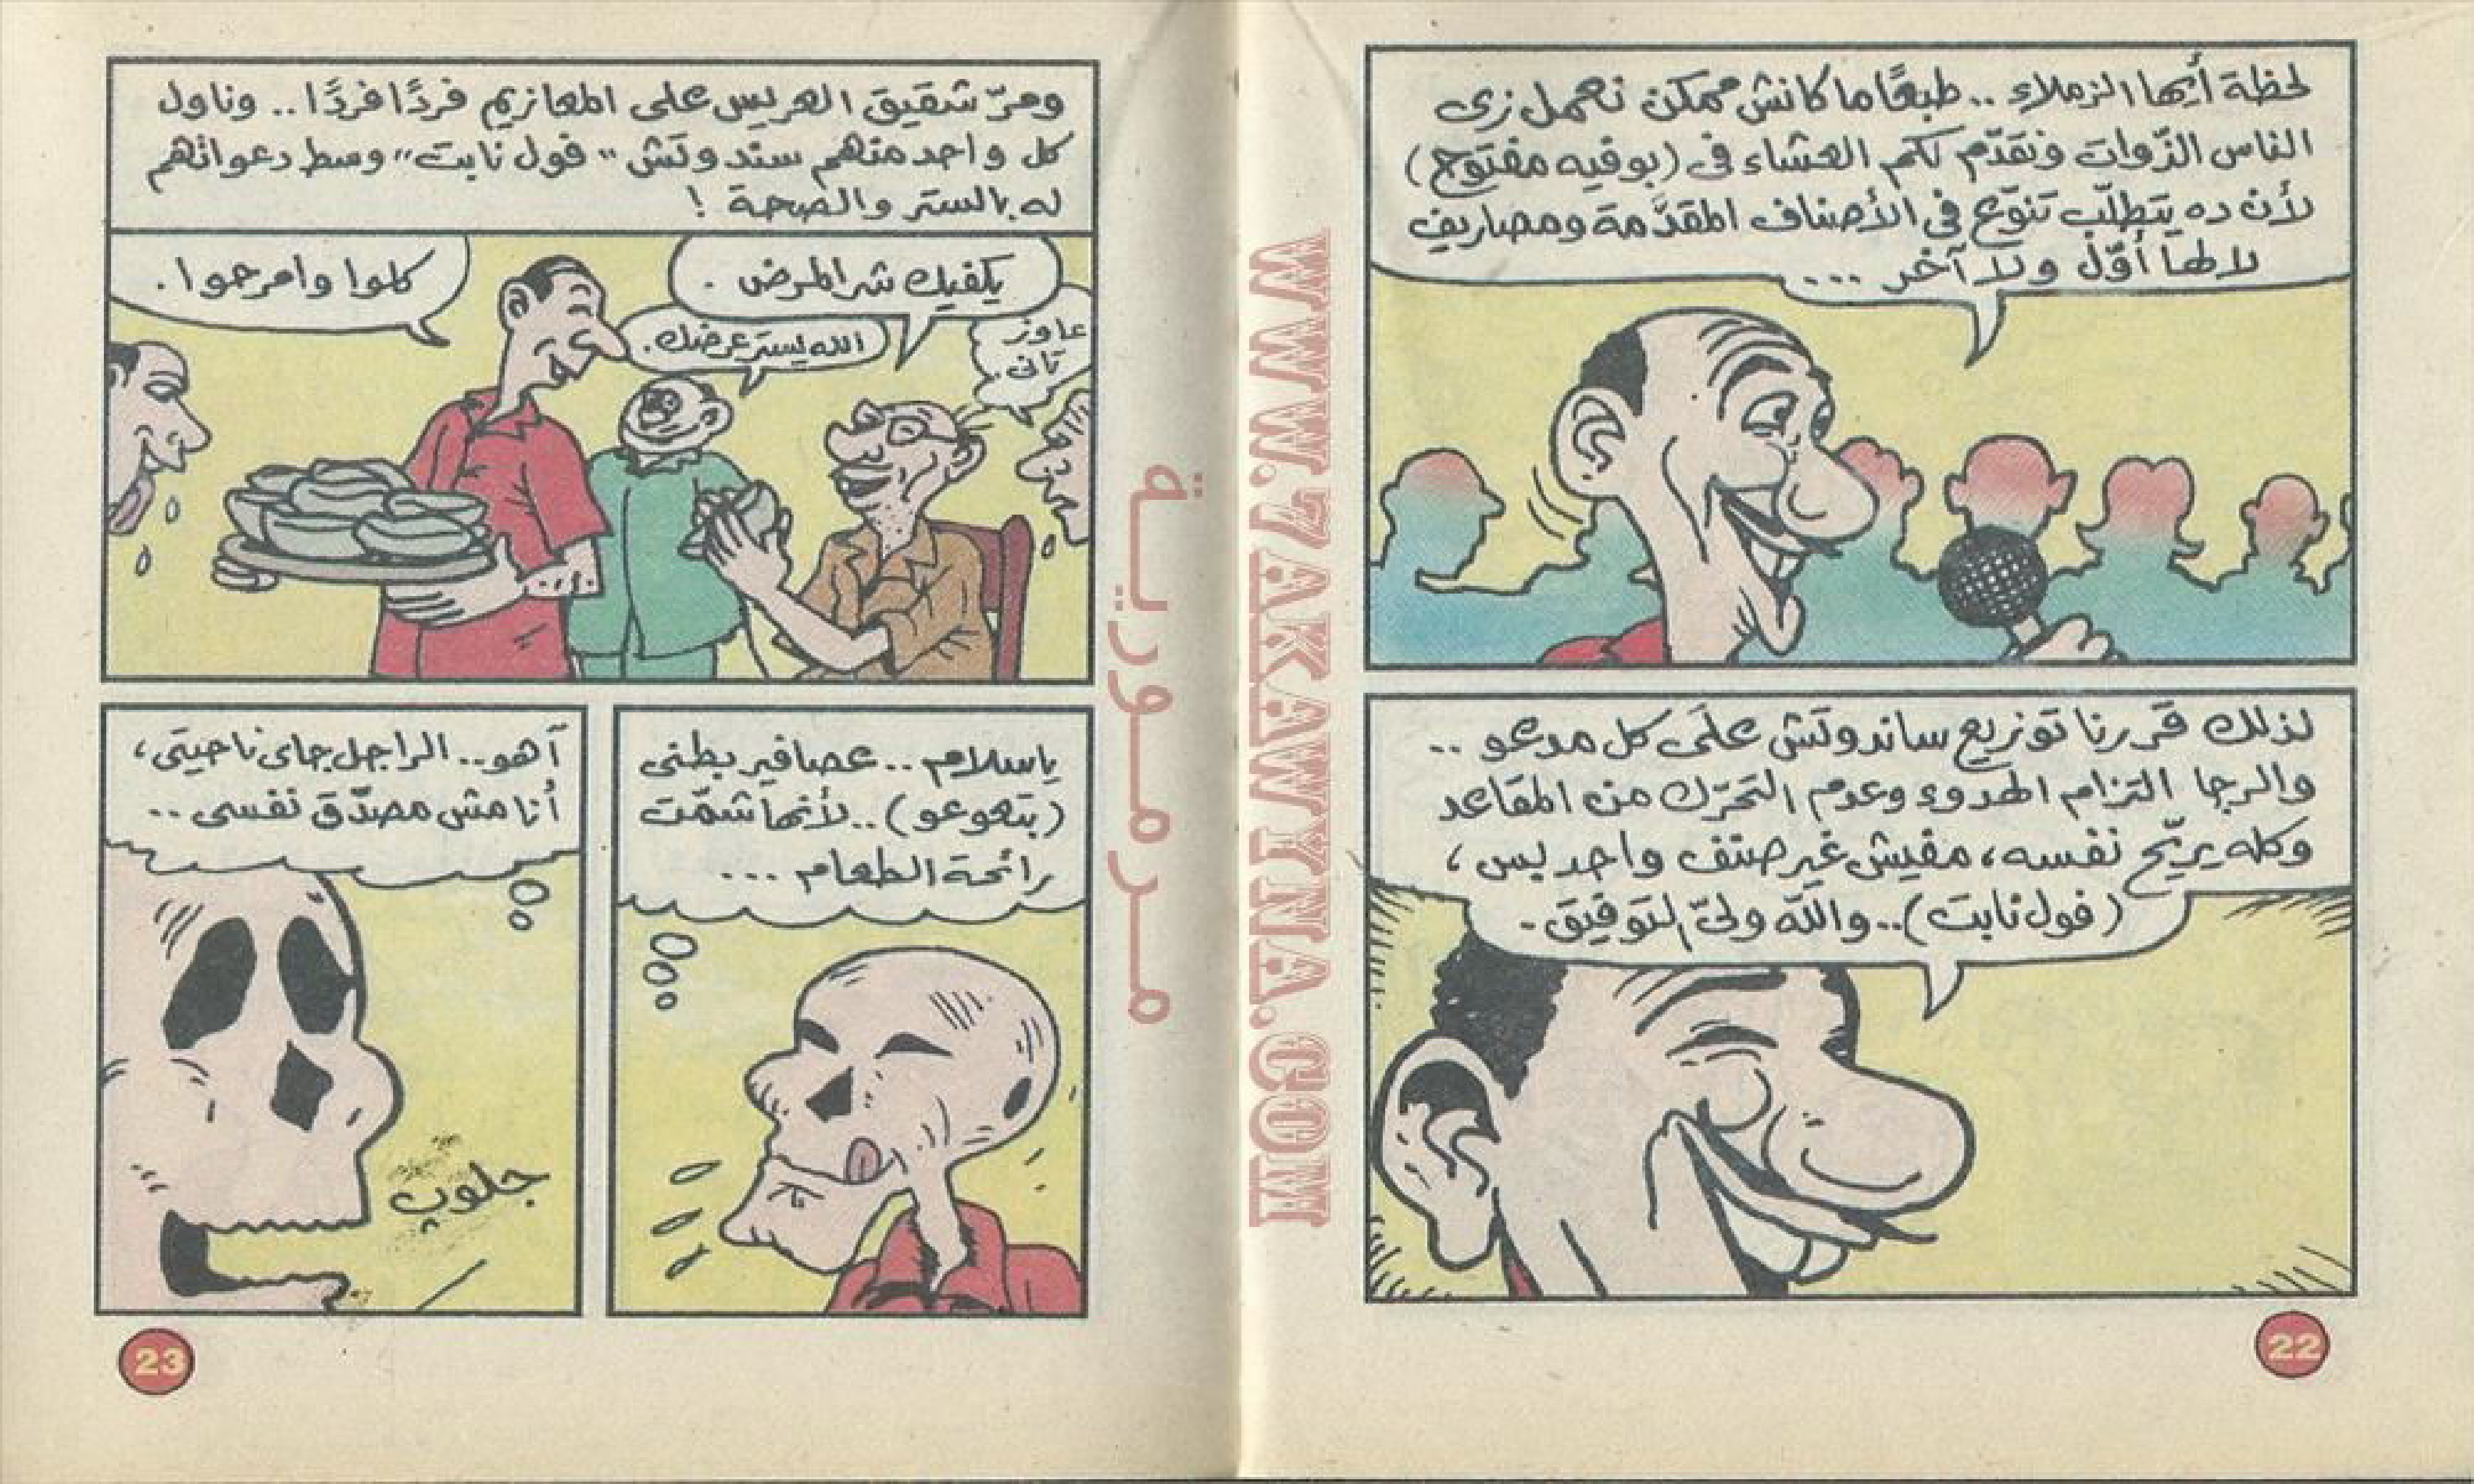 لحظة أيها الزملاء .. طبعًا ما كانش ممكن نعمل زى
الناس الذّوات ونقدّم لكم العشاء فى (بوفيه مفتوح)
لأن ده يتطلّب تنوّع فى الأصناف المقدَّمة ومصاريف
لا لها أوّل ولا آخر ...
لذلك قررنا توزيع ساندوتش على كل مدعو ..
والرجا التزام الهدوء وعدم التحرّك من المقاعد
وكله يريّح نفسه، مفيش غير صنف واحد بس،
(فول نابت).. والله ولىّ التوفيق.
22
WWW.ZAKAWYINA.COM
مرمورية
ومرّ شقيق العريس على المعازيم فردًا فردًا .. وناول
كل واحد منهم سندوتش "فول نابت" وسط دعواتهم
له بالستر والصحة !
يكفيك شر المرض .
كلوا وامرحوا .
عاوز
تانى .
الله يستر عرضك .
ياسلام .. عصافير بطنى
(بتهوهو) .. لأنها شمّت
رائحة الطعام ...
آهو.. الراجل جاى ناحيتى،
أنا مش مصدّق نفسى ..
جلوب
23